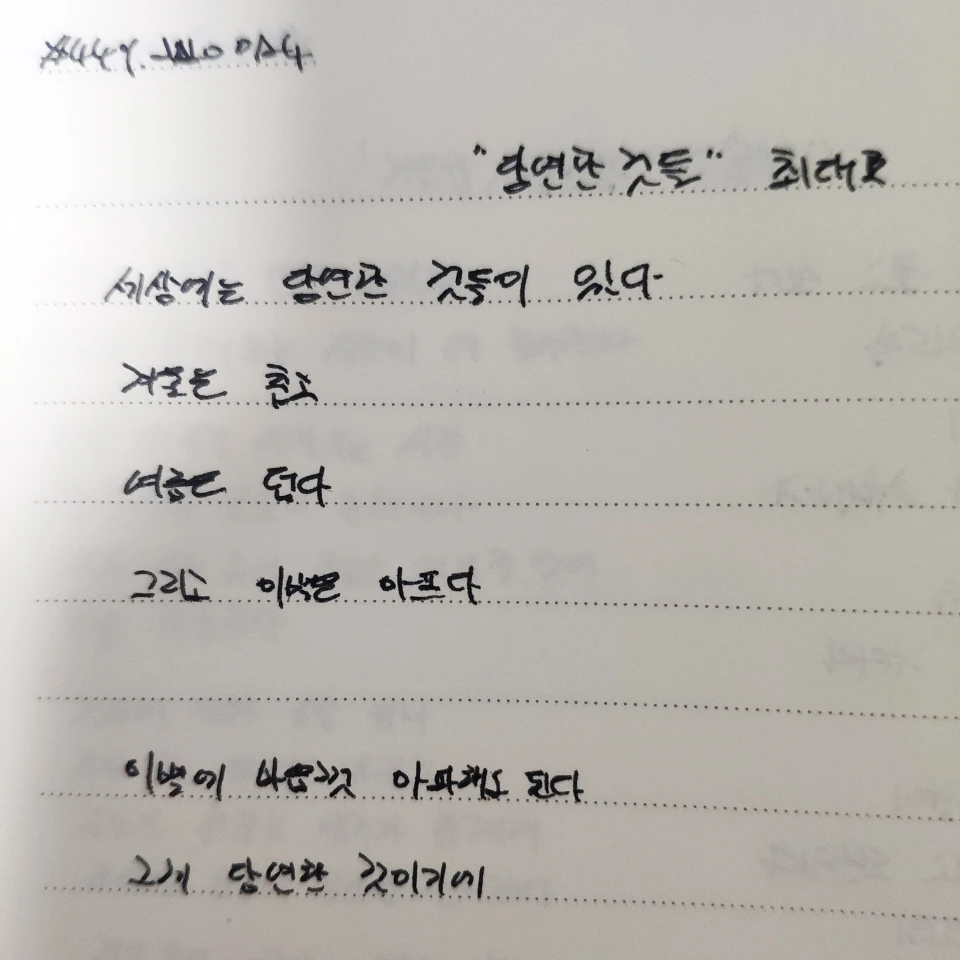 "당연한 것들" 최대호
세상에는 당연한 것들이 있다
겨울은 춥고
여름은 덥다
그리고 이별은 아프다
이별에 마음껏 아파해도 된다
그게 당연한 것이기에